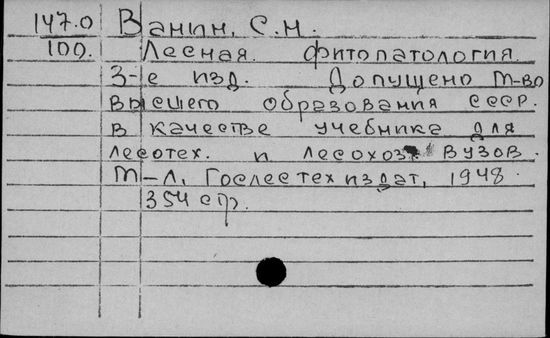 147.0 Ванин, С.И.
100. Лесная. фитопатология.
3-е изд. Допущено м-во
высшего образования СССР.
в качестве учебника для
лесотех. и лесохоз. вузов.
М-Л, Гослестехиздат, 1948.
354 стр.